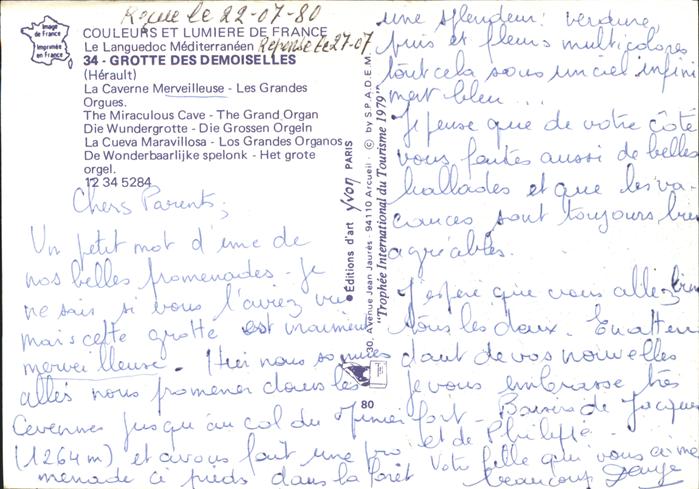 Reçue le 22-07-80
Réponse le 27-07
Image de France
Imprimée en France
COULEURS ET LUMIERE DE FRANCE
Le Languedoc Méditerranéen
34 - GROTTE DES DEMOISELLES
(Hérault)
La Caverne Merveilleuse - Les Grandes
Orgues.
The Miraculous Cave - The Grand Organ
Die Wundergrotte - Die Grossen Orgeln
La Cueva Maravillosa - Los Grandes Organos
De Wonderbaarlijke spelonk - Het grote
orgel.
12 34 5284
Chers Parents,
Un petit mot d'une de
nos belles promenades - Je
ne sais si vous l'aviez vu
mais cette grotte est vraiment
merveilleuse. Hier nous sommes
allés nous promener dans les
Cévennes jusqu'au col du Minier
(1264m) et avons fait une pro
menade à pieds dans la forêt
Editions d'art yvon PARIS
30, Avenue Jean Jaurès - 94110 Arcueil - © by S.P.A.D.E.M.
"Trophée International du Tourisme 1979"
80
une splendeur : verdure,
puis et fleurs multicolores
tout cela sous un ciel infini
ment bleu...
Je pense que de votre côté
vous faites aussi de belles
ballades et que les va
cances sont toujours bien
agréables.
J'espère que vous allez bien
tous les deux. En atten
dant de vos nouvelles
je vous embrasse très
fort - Baisers de Jacques
et de Philippe
Votre fille qui vous aime
beaucoup